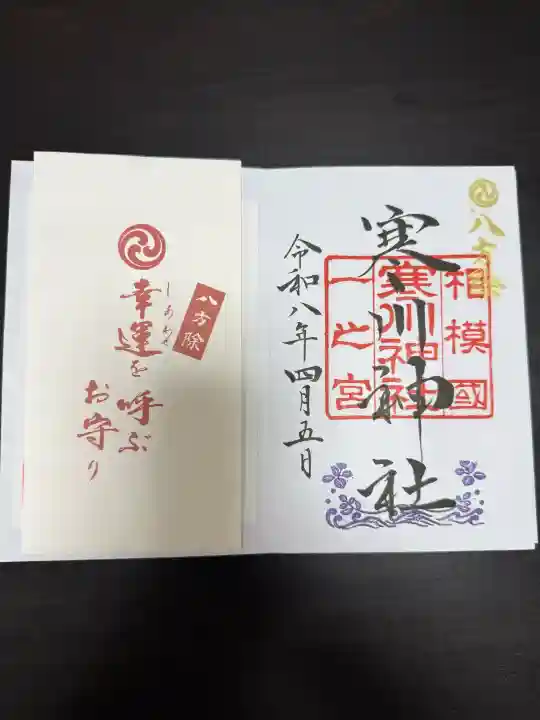 八方除
寒川神社
相模國
寒川神社
一之宮
令和八年四月五日
八方除
しあわせ
幸運を呼ぶ
お守り